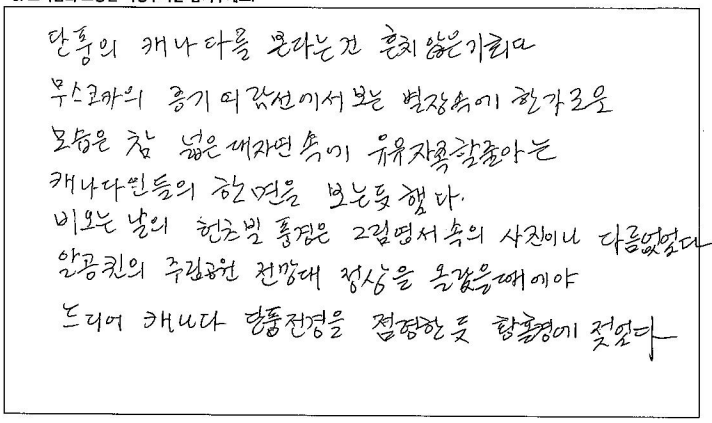 단풍의 캐나다를 본다는건 흔치 않은 기회다
무스코카의 증기 유람선에서 보는 별장속에 한가로운
모습은 참 넓은 대자연 속에 유유자족할줄아는
캐나다인들의 한면을 보는듯 했다.
비오는 날의 헌츠빌 풍경은 그림엽서 속의 사진이나 다름없었다
알공퀸의 주립공원 전망대 정상을 올랐을때에야
드디어 캐나다 단풍전경을 점령한 듯 황홀경에 젖었다